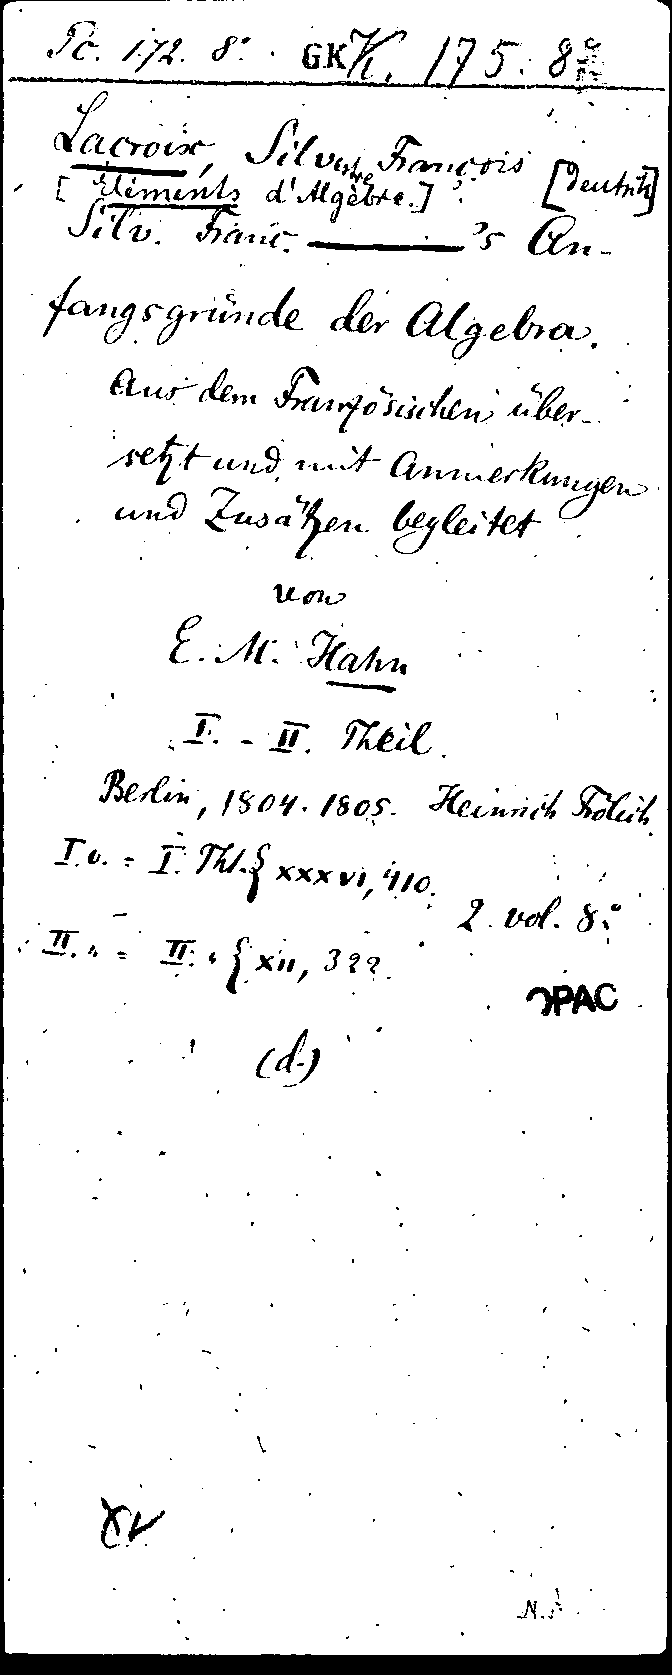 Pc. 172. 8°. GK K. 175. 8°
Lacroix, Silvestre François
[Eléments d'Algèbre.] [Deutsch]
Silv. Franc. ———'s An-
fangsgründe der Algebra.
Aus dem Französischen über-
setzt und mit Anmerkungen
und Zusätzen begleitet
von
E. M. Hahn
I. - II. Theil.
Berlin, 1804. 1805. Heinrich Frölich.
I.v. = I. Thl. { xxxvi, 410.
2 vol. 8°
II. " = II. " { xii, 322.
OPAC
(d.)